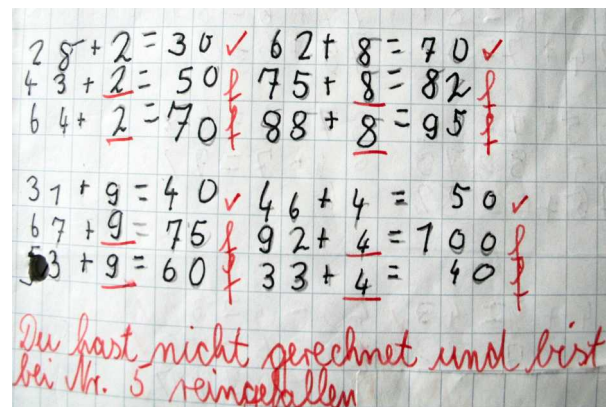 28+2=30 ✓ 62+8=70 ✓
43+2=50 f 75+8=82 f
64+2=70 f 88+8=95 f
31+9=40 ✓ 46+4=50 ✓
67+9=75 f 92+4=100 f
53+9=60 f 33+4=40 f
Du hast nicht gerechnet und bist
bei Nr. 5 reingefallen